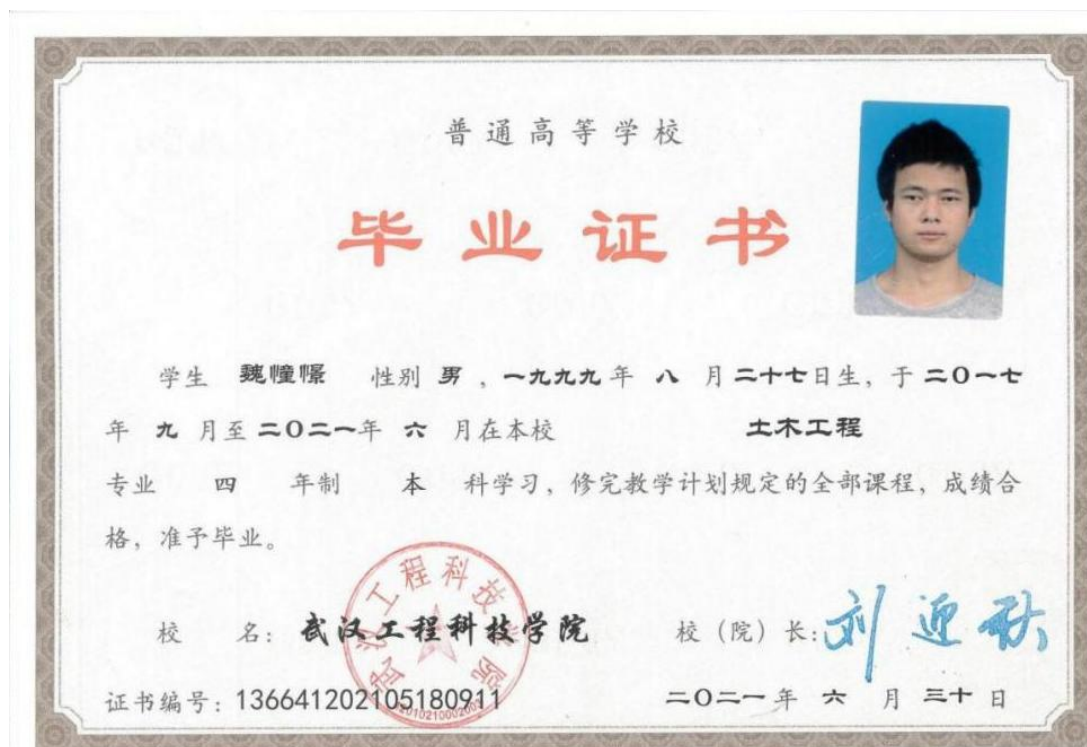 普通高等学校
毕业证书
学生 魏憧憬 性别 男 ，一九九九年 八 月二十七日生，于二〇一七
年 九 月至二〇二一年 六 月在本校 土木工程
专业 四 年制 本 科学习，修完教学计划规定的全部课程，成绩合
格，准予毕业。
校 名：武汉工程科技学院 校（院）长：刘迎秋
证书编号：136641202105180911 二〇二一年 六 月 三十 日
武汉工程科技学院